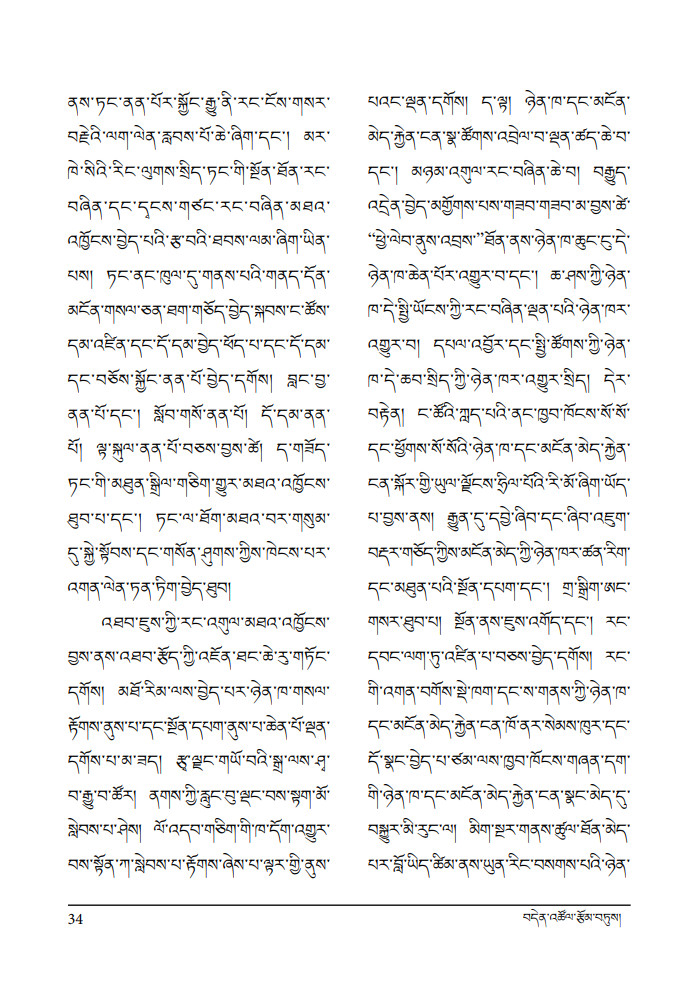 ནས་ཏང་ནན་པོར་སྐྱོང་རྒྱུ་ནི་རང་ངོས་གསར་
བརྗེའི་ལག་ལེན་རླབས་པོ་ཆེ་ཞིག་དང་། མར་
ཁེ་སིའི་རིང་ལུགས་སྲིད་ཏང་གི་སྔོན་ཐོན་རང་
བཞིན་དང་དྭངས་གཙང་རང་བཞིན་མཐའ་
འཁྱོངས་བྱེད་པའི་རྩ་བའི་ཐབས་ལམ་ཞིག་ཡིན་
པས། ཏང་ནང་ཁུལ་དུ་གནས་པའི་གནད་དོན་
མངོན་གསལ་ཅན་ཐག་གཅོད་བྱེད་སྐབས་ང་ཚོས་
དམ་འཛིན་དང་དོ་དམ་བྱེད་ཕོད་པ་དང་དོ་དམ་
དང་བཅོས་སྐྱོང་ནན་པོ་བྱེད་དགོས། བླང་བྱ་
ནན་པོ་དང་། སློབ་གསོ་ནན་པོ། དོ་དམ་ནན་
པོ། ལྟ་སྐུལ་ནན་པོ་བཅས་བྱས་ཚེ། ད་གཟོད་
ཏང་གི་མཐུན་སྒྲིལ་གཅིག་གྱུར་མཐའ་འཁྱོངས་
ཐུབ་པ་དང་། ཏང་ལ་ཐོག་མཐའ་བར་གསུམ་
དུ་སྐྱེ་སྟོབས་དང་གསོན་ཤུགས་ཀྱིས་ཁེངས་པར་
འགན་ལེན་ཏན་ཏིག་བྱེད་ཐུབ།
འཐབ་ཇུས་ཀྱི་རང་འགུལ་མཐའ་འཁྱོངས་
བྱས་ནས་འཐབ་རྩོད་ཀྱི་འཇོན་ཐང་ཆེ་རུ་གཏོང་
དགོས། མཐོ་རིམ་ལས་བྱེད་པར་ཉེན་ཁ་གསལ་
རྟོགས་ནུས་པ་དང་སྔོན་དཔག་ནུས་པ་ཆེན་པོ་ལྡན་
དགོས་པ་མ་ཟད། རྩྭ་ལྗང་གཡོ་བའི་སྒྲ་ལས་ཤྭ་
བ་རྒྱུ་བ་ཚོར། ནགས་ཀྱི་རླུང་བུ་ལྡང་བས་སྟག་མོ་
སླེབས་པ་ཤེས། ལོ་འདབ་གཅིག་གི་ཁ་དོག་འགྱུར་
བས་སྟོན་ཀ་སླེབས་པ་རྟོགས་ཞེས་པ་ལྟར་གྱི་ནུས་
པའང་ལྡན་དགོས། ད་ལྟ། ཉེན་ཁ་དང་མངོན་
མེད་རྐྱེན་ངན་སྣ་ཚོགས་འབྲེལ་བ་ལྡན་ཚད་ཆེ་བ་
དང་། མཉམ་འགུལ་རང་བཞིན་ཆེ་བ། བརྒྱུད་
འདྲེན་བྱེད་མགྱོགས་པས་གཟབ་གཟབ་མ་བྱས་ཚེ་
“ཕྱེ་ལེབ་ནུས་འབྲས་”ཐོན་ནས་ཉེན་ཁ་ཆུང་ངུ་དེ་
ཉེན་ཁ་ཆེན་པོར་འགྱུར་བ་དང་། ཆ་ཤས་ཀྱི་ཉེན་
ཁ་དེ་སྤྱི་ཡོངས་ཀྱི་རང་བཞིན་ལྡན་པའི་ཉེན་ཁར་
འགྱུར་བ། དཔལ་འབྱོར་དང་སྤྱི་ཚོགས་ཀྱི་ཉེན་
ཁ་དེ་ཆབ་སྲིད་ཀྱི་ཉེན་ཁར་འགྱུར་སྲིད། དེར་
བརྟེན། ང་ཚོའི་ཀླད་པའི་ནང་ཁྱབ་ཁོངས་སོ་སོ་
དང་ཕྱོགས་སོ་སོའི་ཉེན་ཁ་དང་མངོན་མེད་རྐྱེན་
ངན་སྐོར་གྱི་ཡུལ་ལྗོངས་ཧྲིལ་པོའི་རི་མོ་ཞིག་ཡོད་
པ་བྱས་ནས། རྒྱུན་དུ་དབྱེ་ཞིབ་དང་ཞིབ་འཇུག་
བརྡར་གཅོད་ཀྱིས་མངོན་མེད་ཀྱི་ཉེན་ཁར་ཚན་རིག་
དང་མཐུན་པའི་སྔོན་དཔག་དང་། གྲ་སྒྲིག་ཨང་
གསར་ཐུབ་པ། སྔོན་ནས་ཇུས་འགོད་དང་། རང་
དབང་ལག་ཏུ་འཛིན་པ་བཅས་བྱེད་དགོས། རང་
གི་འགན་བགོས་སྡེ་ཁག་དང་ས་གནས་ཀྱི་ཉེན་ཁ་
དང་མངོན་མེད་རྐྱེན་ངན་ཁོ་ནར་སེམས་ཁུར་དང་
དོ་སྣང་བྱེད་པ་ཙམ་ལས་ཁྱབ་ཁོངས་གཞན་དག་
གི་ཉེན་ཁ་དང་མངོན་མེད་རྐྱེན་ངན་སྣང་མེད་དུ་
བསྐྱུར་མི་རུང་ལ། མིག་སྔར་གནས་ཚུལ་ཐོན་མེད་
པར་བློ་ཡིད་ཚིམ་ནས་ཡུན་རིང་བསགས་པའི་ཉེན་
34
བདེན་འཚོལ་རྩོམ་བཏུས།